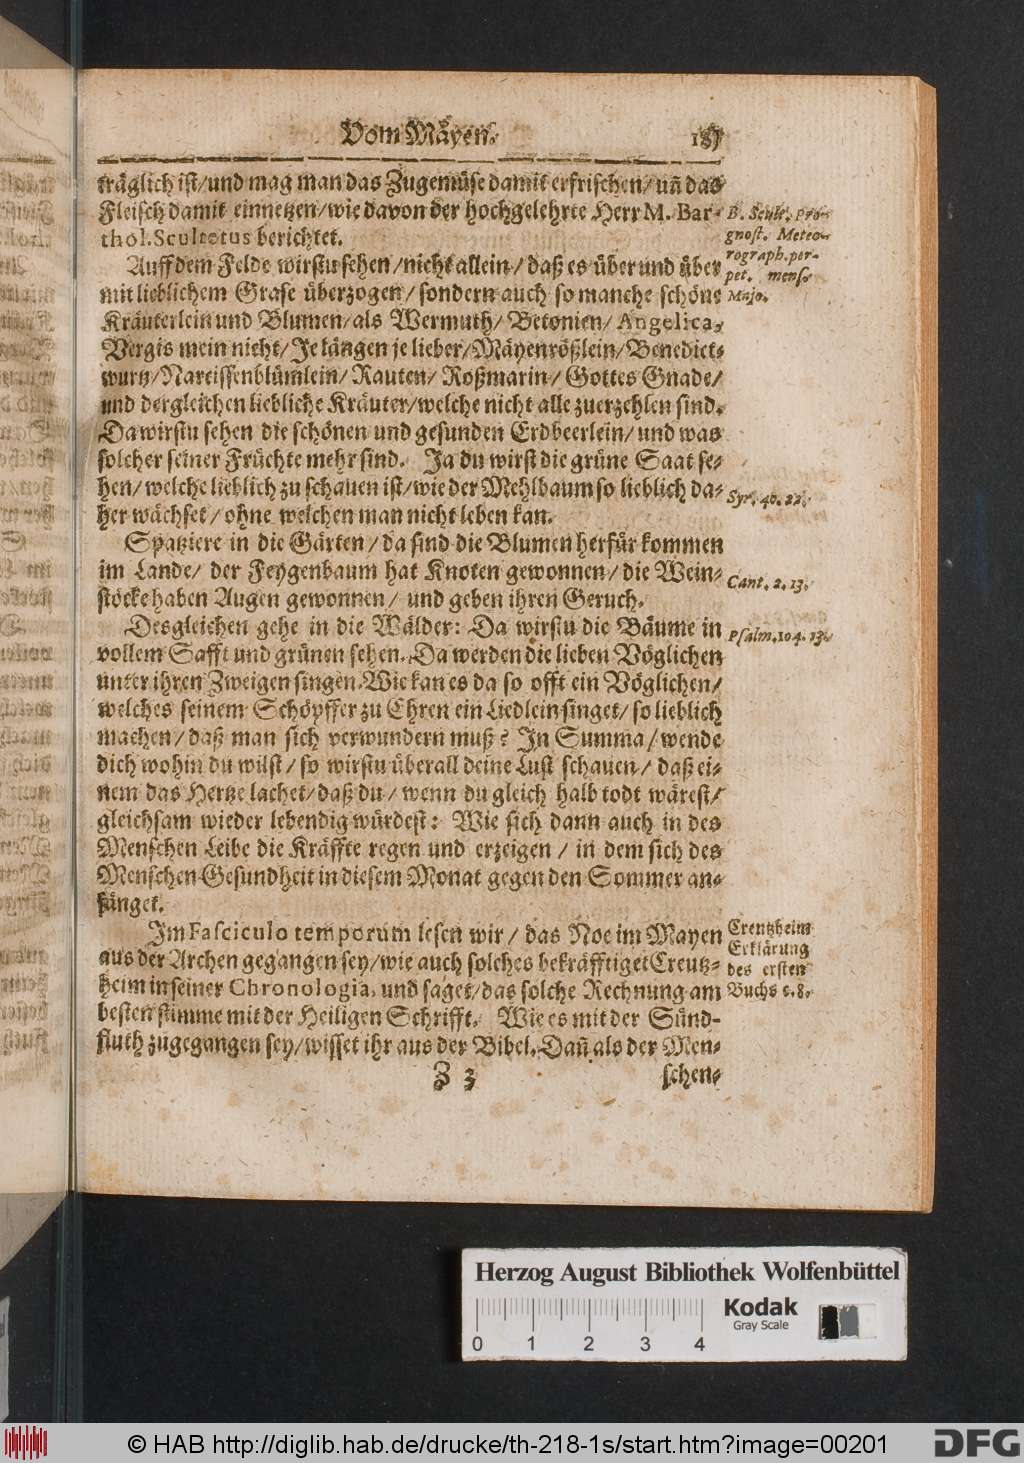 Vom Mäyen.
träglich ist/und mag man das Zugemüse damit erfrischen/ uñ das
Fleisch damit einnetzen/wie davon der hochgelehrte Herr M. Bar-
thol. Scultetus berichtet.
B. Scult. Pro-
gnost. Meteo-
rograph. per-
pet. mens.
Majo.
Auff dem Felde wirstu sehen/nicht allein/ daß es über und über
mit lieblichem Grase überzogen/ sondern auch so manche schöne
Kräuterlein und Blumen/als Wermuth/ Betonien/ Angelica,
Vergis mein nicht/ Je längen je lieber/Mäyenrößlein/Benedict-
wurtz/Narcissenblümlein/ Rauten/ Roßmarin/ Gottes Gnade/
und dergleichen liebliche Kräuter/welche nicht alle zuerzehlen sind.
Da wirstu sehen die schönen und gesunden Erdbeerlein/ und was
solcher seiner Früchte mehr sind. Ja du wirst die grüne Saat se-
hen/welche lieblich zu schauen ist/wie der Mehlbaum so lieblich da-
her wächset/ohne welchen man nicht leben kan.
Syr. 40. 22.
Spatziere in die Gärten/da sind die Blumen herfür kommen
im Lande/ der Feygenbaum hat Knoten gewonnen/ die Wein-
stöcke haben Augen gewonnen/ und geben ihren Geruch.
Cant. 2. 13.
Desgleichen gehe in die Wälder: Da wirstu die Bäume in
vollem Safft und grünen sehen. Da werden die lieben Vöglichen
unter ihren Zweigen singen. Wie kan es da so offt ein Vöglichen/
welches seinem Schöpffer zu Ehren ein Liedlein singet/ so lieblich
machen/ daß man sich verwundern muß? In Summa/wende
dich wohin du wilst/ so wirstu überall deine Lust schauen/ daß ei-
nem das Hertze lachet/daß du/ wenn du gleich halb todt wärest/
gleichsam wieder lebendig würdest: Wie sich dann auch in des
Menschen Leibe die Kräffte regen und erzeigen/ in dem sich des
Menschen Gesundheit in diesem Monat gegen den Sommer an-
fänget.
Psalm. 104. 13.
Im Fasciculo temporum lesen wir/ das Noe im Mayen
aus der Archen gegangen sey/wie auch solches bekräfftiget Creutz-
heim in seiner Chronologia, und saget/das solche Rechnung am
besten stimme mit der Heiligen Schrifft. Wie es mit der Sünd-
fluth zugegangen sey/wisset ihr aus der Bibel. Dañ als der Men-
Creutzheim
Erklärung
des ersten
Buchs c. 8.
Z 3
schen-
Herzog August Bibliothek Wolfenbüttel
Kodak
Gray Scale
0 1 2 3 4
© HAB http://diglib.hab.de/drucke/th-218-1s/start.htm?image=00201
DFG